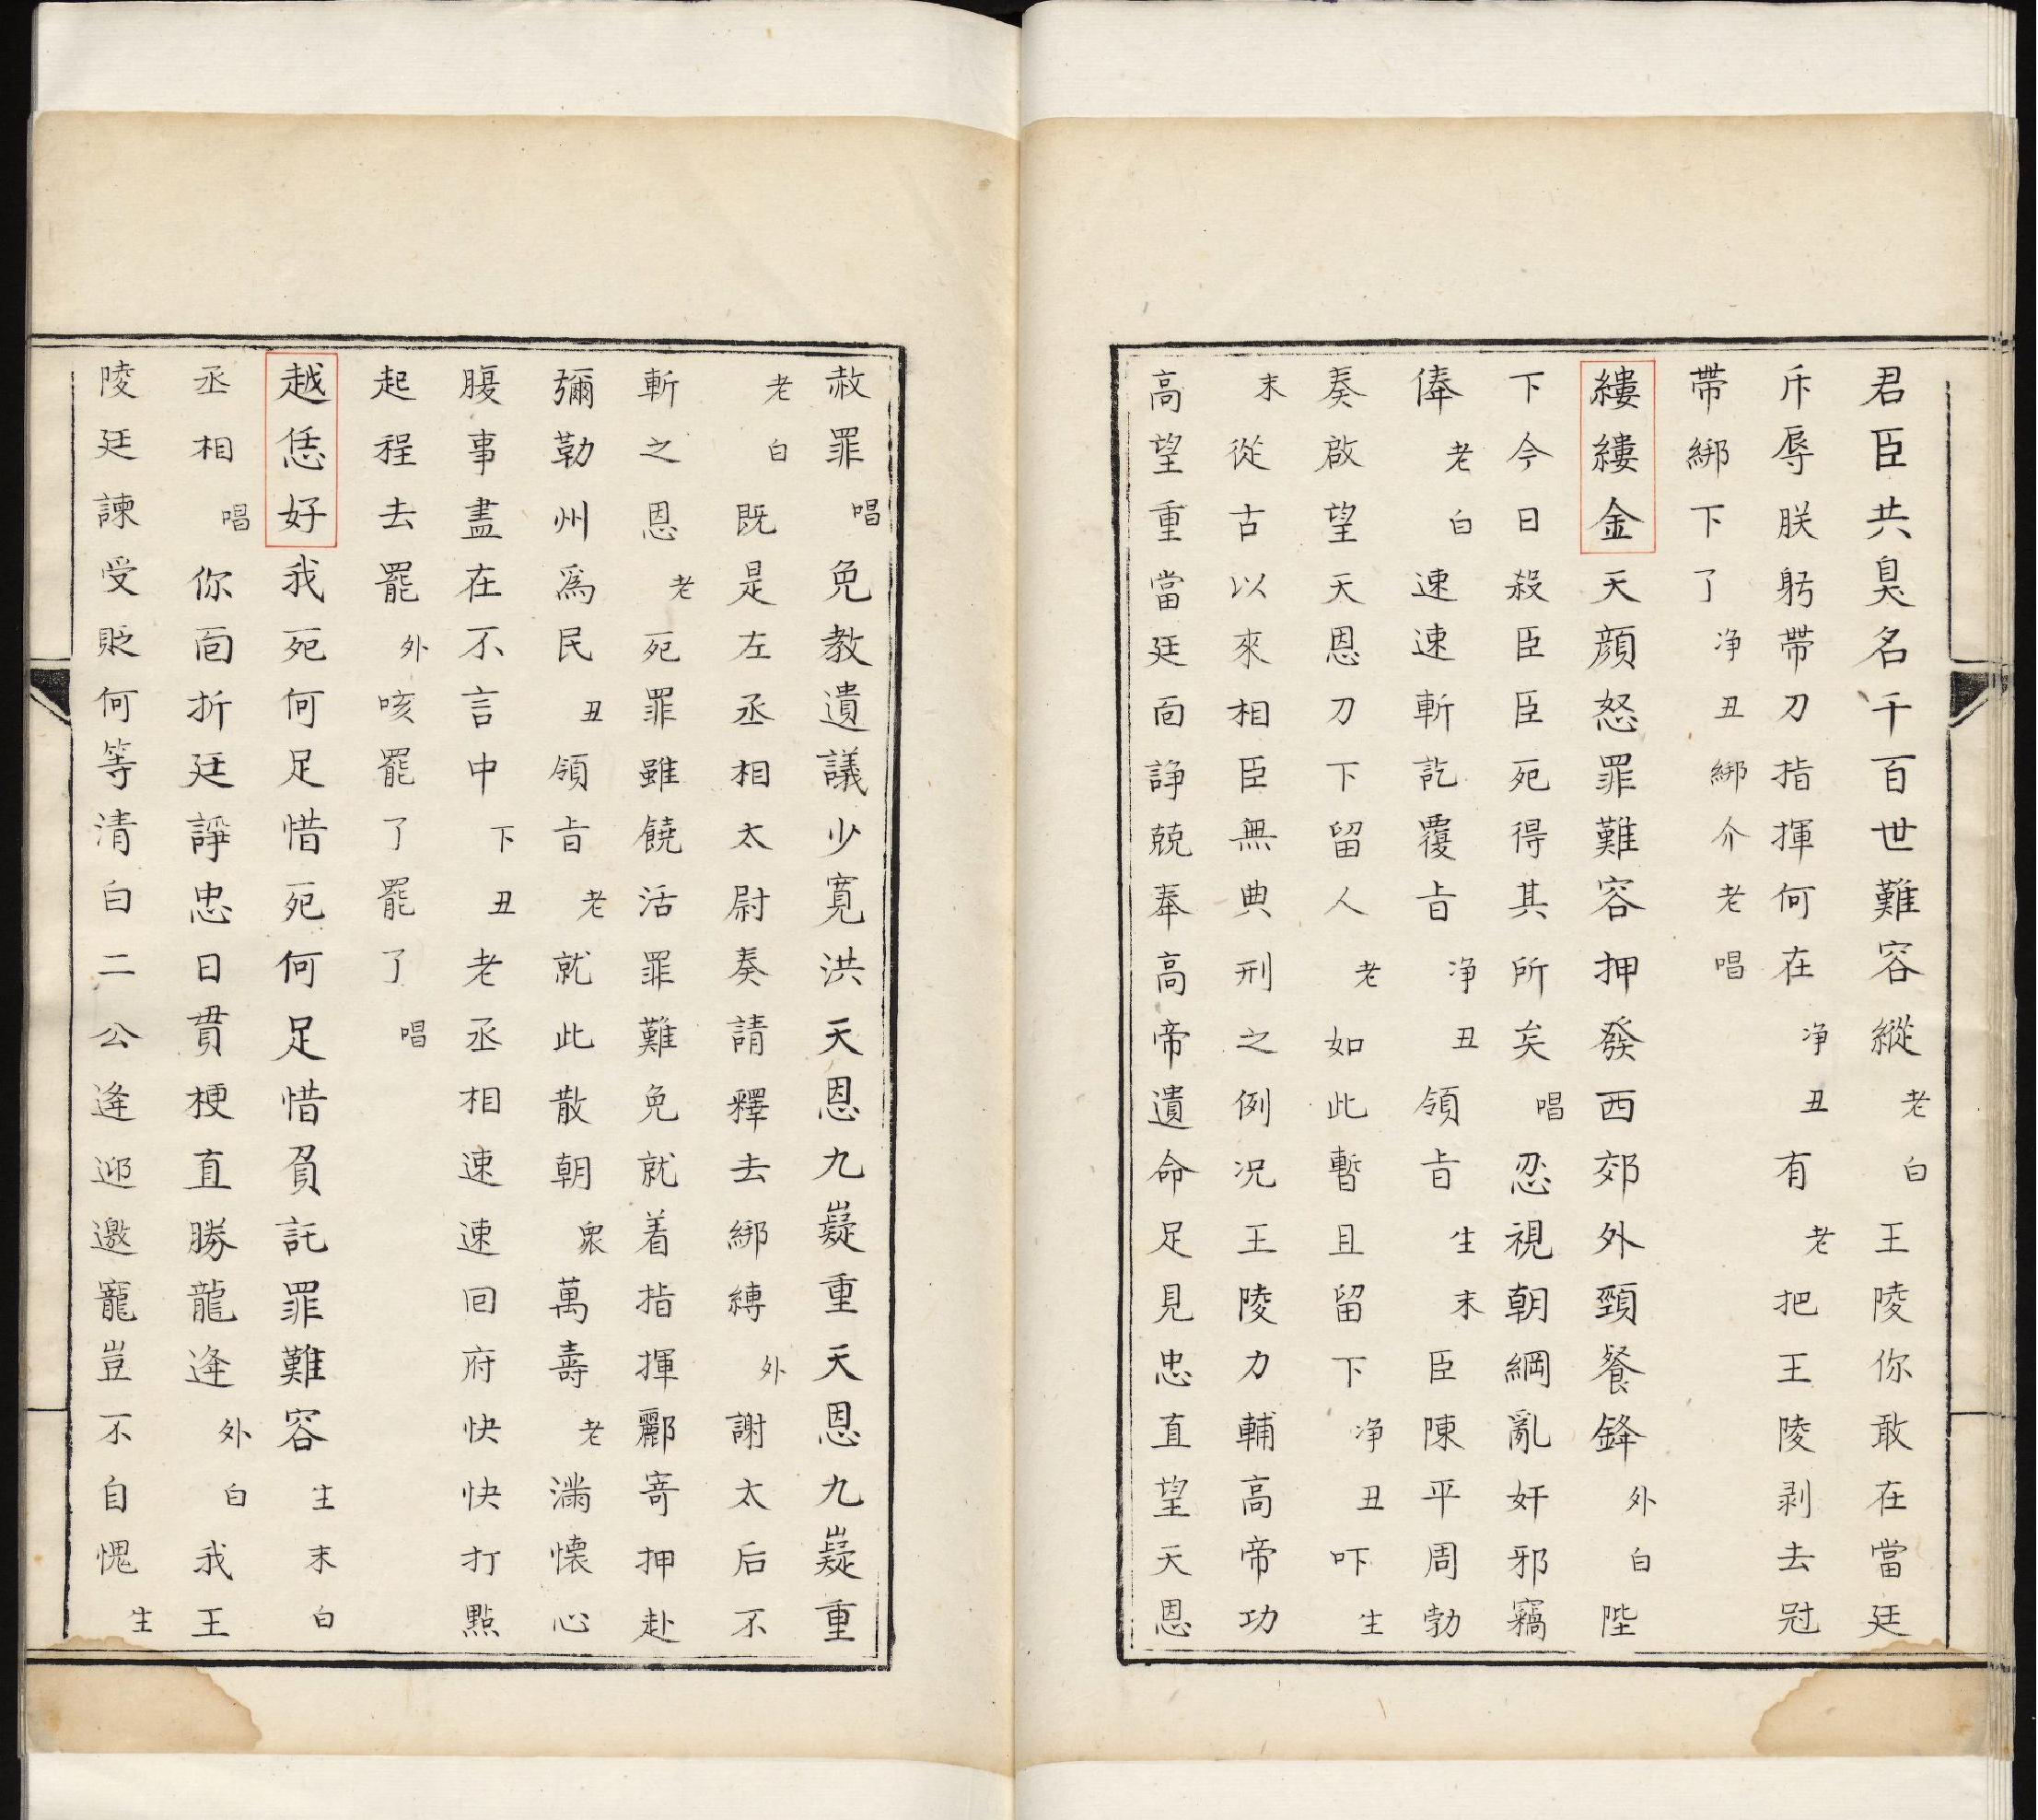 君臣共臭名千百世難容縱老白王陵你敢在當廷
斥辱朕躬帶刀指揮何在净丑有老把王陵剥去冠
帶綁下了净丑綁介老唱
縷縷金天顔怒罪難容押發西郊外頸餐鋒外白陛
下今日殺臣臣死得其所矣唱忍視朝綱亂奸邪竊
俸老白速速斬訖覆旨净丑領旨生末臣陳平周勃
奏啟望天恩刀下留人老如此暫且留下净丑吓生
末從古以來相臣無典刑之例况王陵力輔高帝功
高望重當廷面諍兢奉高帝遺命足見忠直望天恩
赦罪唱免教遺議少寬洪天恩九嶷重天恩九嶷重
老白既是左丞相太尉奏請釋去綁縛外謝太后不
斬之恩老死罪雖饒活罪難免就着指揮酈寄押赴
彌勒州爲民丑領旨老就此散朝衆萬壽老滿懷心
腹事盡在不言中下丑老丞相速速回府快快打點
起程去罷外咳罷了罷了唱
越恁好我死何足惜死何足惜負託罪難容生末白
丞相唱你面折廷諍忠日貫梗直勝龍逄外白我王
陵廷諫受貶何等清白二公逄迎邀寵豈不自愧生